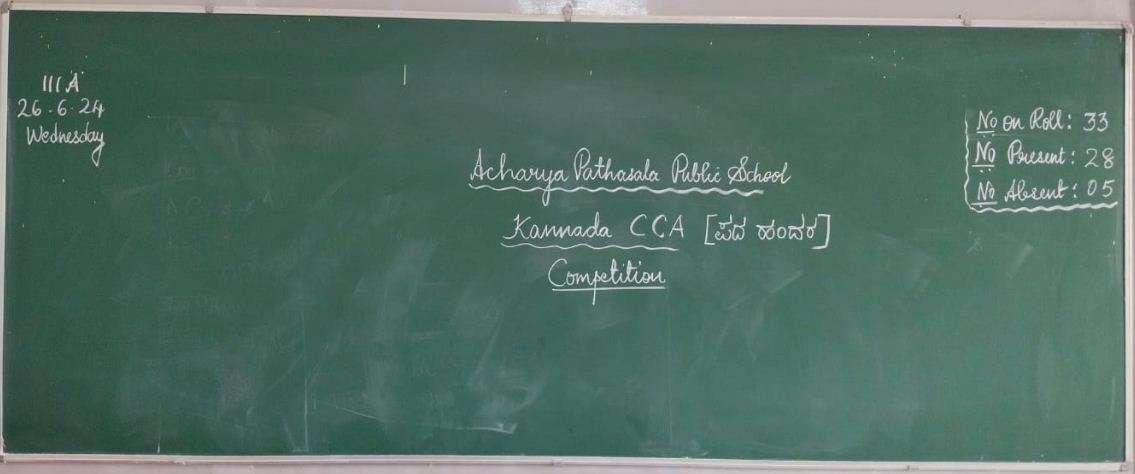 III A
26.6.24
Wednesday
Acharya Pathasala Public School
Kannada CCA [ಪದ ಹಂದರ]
Competition
No on Roll: 33
No Present: 28
No Absent: 05